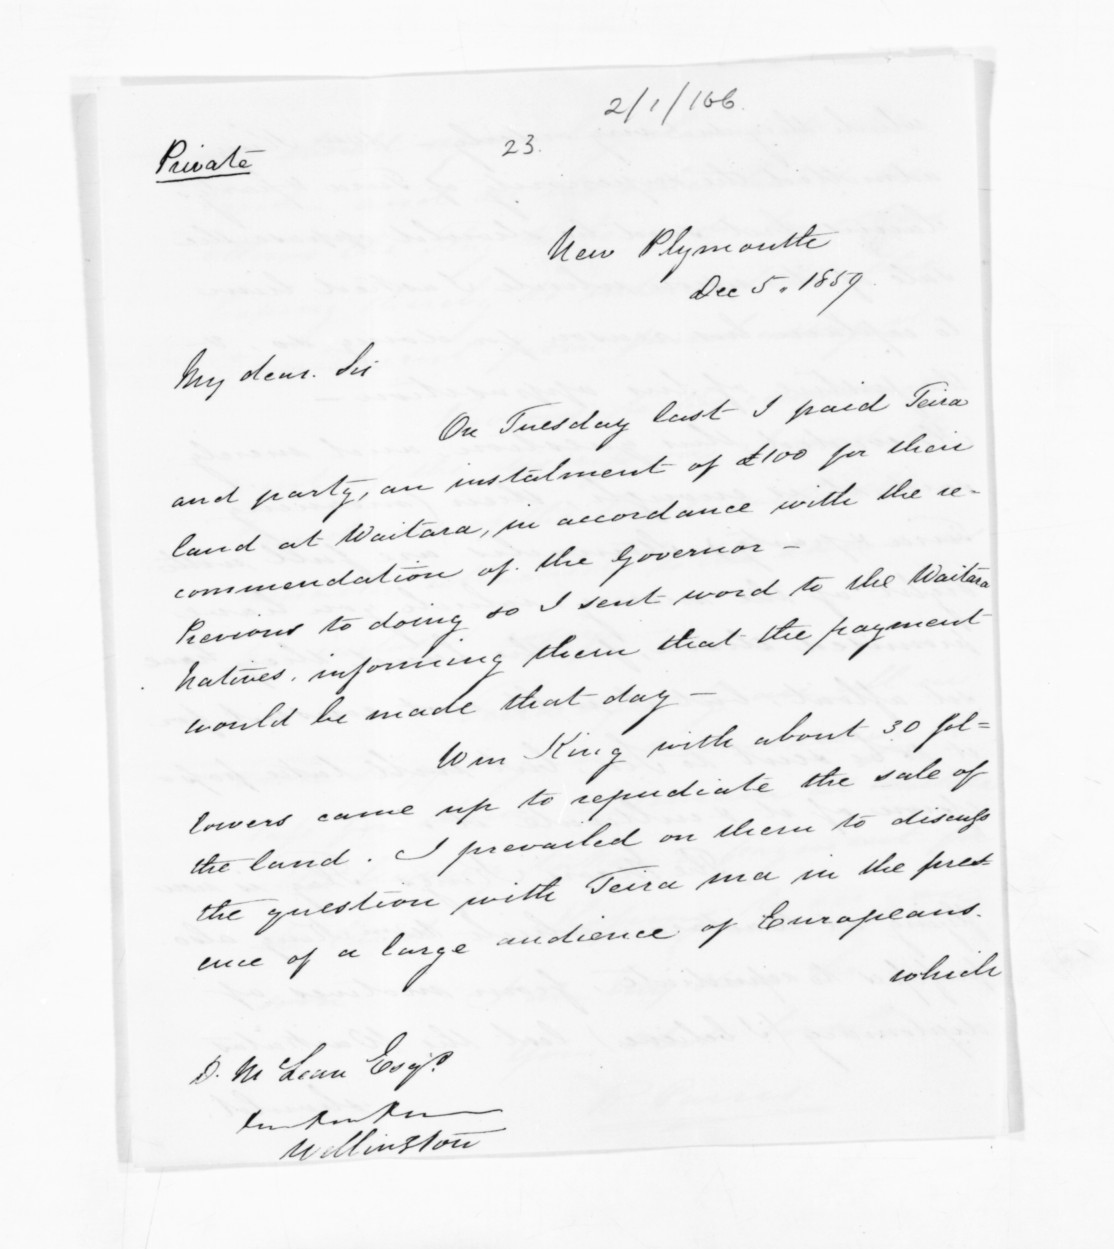 2/1/166.
23.
Private
New Plymouth
Dec 5. 1859.
My dear. Sir
On Tuesday last I paid Teira
and party, an instalment of £100 for their
land at Waitara, in accordance with the re-
commendation of the Governor -
Previous to doing so I sent word to the Waitara
Natives, informing them that the payment
would be made that day -
Wm King with about 30 fol=
lowers came up to repudiate the sale of
the land. I prevailed on them to discuss
the question with Teira ma in the pres
ence of a large audience of Europeans.
which
D. McLean Esqr.
Wellington